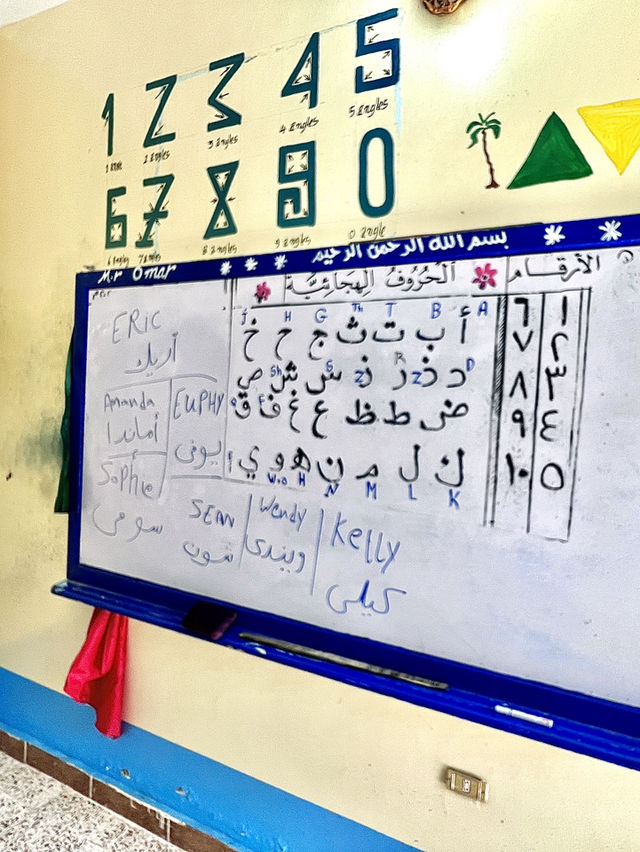 1 2 3 4 5
1 Angle 2 Angles 3 Angles 4 Angles 5 Angles
6 7 8 9 0
6 Angles 7 Angles 8 Angles 9 Angles 0 Angle
M.r Omar بسم الله الرحمن الرحيم
الحُرُوفُ الهِجَائِيَّة
الأرقام
A B T Th G H
أ ب ت ث ج ح خ
D Z R Z S Sh
د ذ ر ز س ش ص
ض ط ظ ع غ ف ق
F
ك ل م ن هـ و ي
K L M N H W.o
١ ٦
٢ ٧
٣ ٨
٤ ٩
٥ ١٠
ERIC
أريك
Amanda
أماندا
EUPHY
يوفى
Sophie
سوفى
SEAN
شون
Wendy
ويندى
Kelly
كيلى